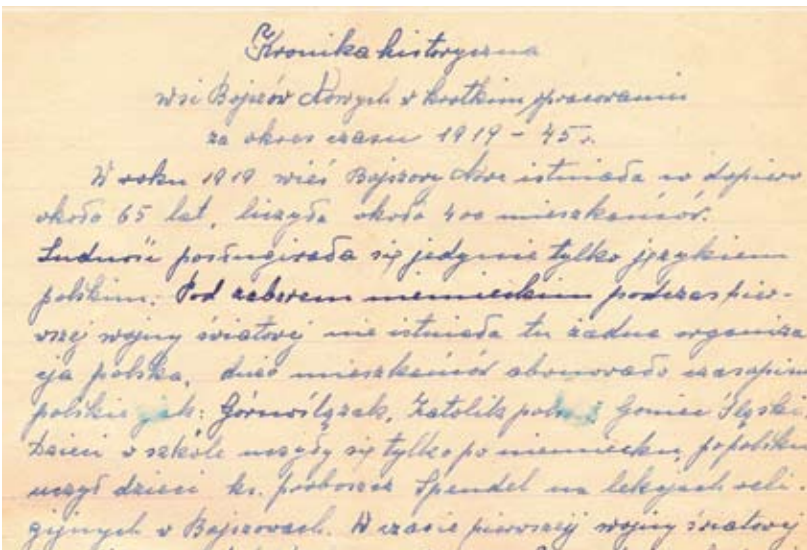 Kronika historyczna
wsi Bojszów Nowych w krótkim opracowaniu
za okres czasu 1919 - 45 r.
W roku 1919 wieś Bojszowy Nowe istniała w dopiero
około 65 lat, liczyła około 400 mieszkańców.
Ludność posługiwała się jedynie tylko językiem
polskim. Pod zaborem niemieckim podczas pier-
wszej wojny światowej nie istniała tu żadna organiza
cja polska, dużo mieszkańców abonowało czasopisma
polskie jak: Górnoślązak, Katolik polski i Goniec Śląski
Dzieci w szkole uczyły się tylko po niemiecku, po polsku
uczył dzieci ks. proboszcz Spendel na lekcjach reli-
gijnych w Bojszowach. W czasie pierwszej wojny światowej